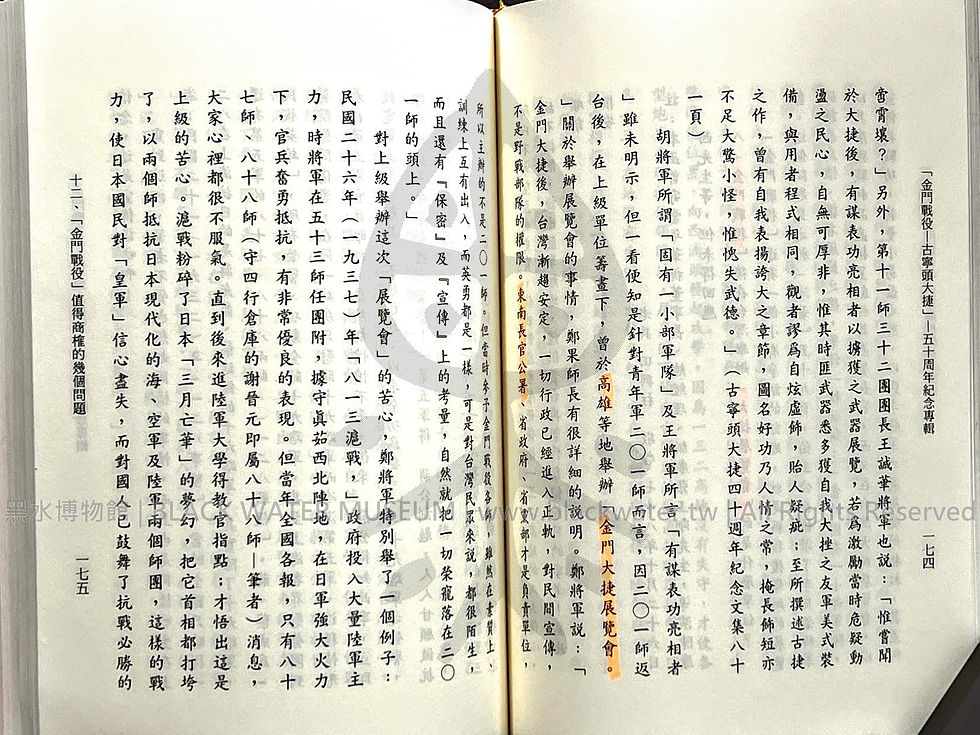 「金門戰役—古寧頭大捷」—五十周年紀念專輯
一七四
啻霄壤？」另外，第十一師三十二團團長王誠華將軍也說：「惟嘗聞
於大捷後，有謀表功亮相者以擄獲之武器展覽，若為激勵當時危疑動
盪之民心，自無可厚非，惟其時匪武器悉多獲自我大挫之友軍美式裝
備，與用者程式相同，觀者謬為自炫虛飾，貽人疑疵；至所撰述古捷
之作，曾有自我表揚誇大之章節，圖名好功乃人情之常，掩長飾短亦
不足大驚小怪，惟愧失武德。」（古寧頭大捷四十週年紀念文集八十
一頁）
胡將軍所謂「固有一小部軍隊」及王將軍所言「有謀表功亮相者
」雖未明示，但一看便知是針對青年軍二〇一師而言，因二〇一師返
台後，在上級單位籌畫下，曾於高雄等地舉辦「金門大捷展覽會。
」關於舉辦展覽會的事情，鄭果師長有很詳細的說明。鄭將軍說：「
金門大捷後，台灣漸趨安定，一切行政已經進入正軌，對民間宣傳，
不是野戰部隊的權限。東南長官公署、省政府、省黨部才是負責單位，
所以主辦的不是二〇一師。但當時參予金門戰役各師，雖然在素質上、
訓練上互有出入，而英勇都是一樣，可是對台灣民眾來說，都很陌生，
而且還有『保密』及『宣傳』上的考量，自然就把一切榮寵落在二〇
一師的頭上。」
對上級舉辦這次「展覽會」的苦心，鄭將軍特別舉了一個例子：
民國二十六年（一九三七）年「八一三滬戰，」政府投入大量陸軍主
力，時將軍在五十三師任團附，據守真茹西北陣地，在日軍強大火力
下，官兵奮勇抵抗，有非常優良的表現。但當年全國各報，只有八十
七師、八十八師（守四行倉庫的謝晉元即屬八十八師—筆者）消息，
大家心裡都很不服氣。直到後來進陸軍大學得教官指點；才悟出這是
上級的苦心。滬戰粉碎了日本「三月亡華」的夢幻，把它首相都打垮
了，以兩個師抵抗日本現代化的海、空軍及陸軍兩個師團，這樣的戰
力，使日本國民對「皇軍」信心盡失，而對國人已鼓舞了抗戰必勝的
十二、「金門戰役」值得商榷的幾個問題
一七五
黑水博物館 | BLACK WATER MUSEUM | www.blackwater.tw | All Rights Reserved